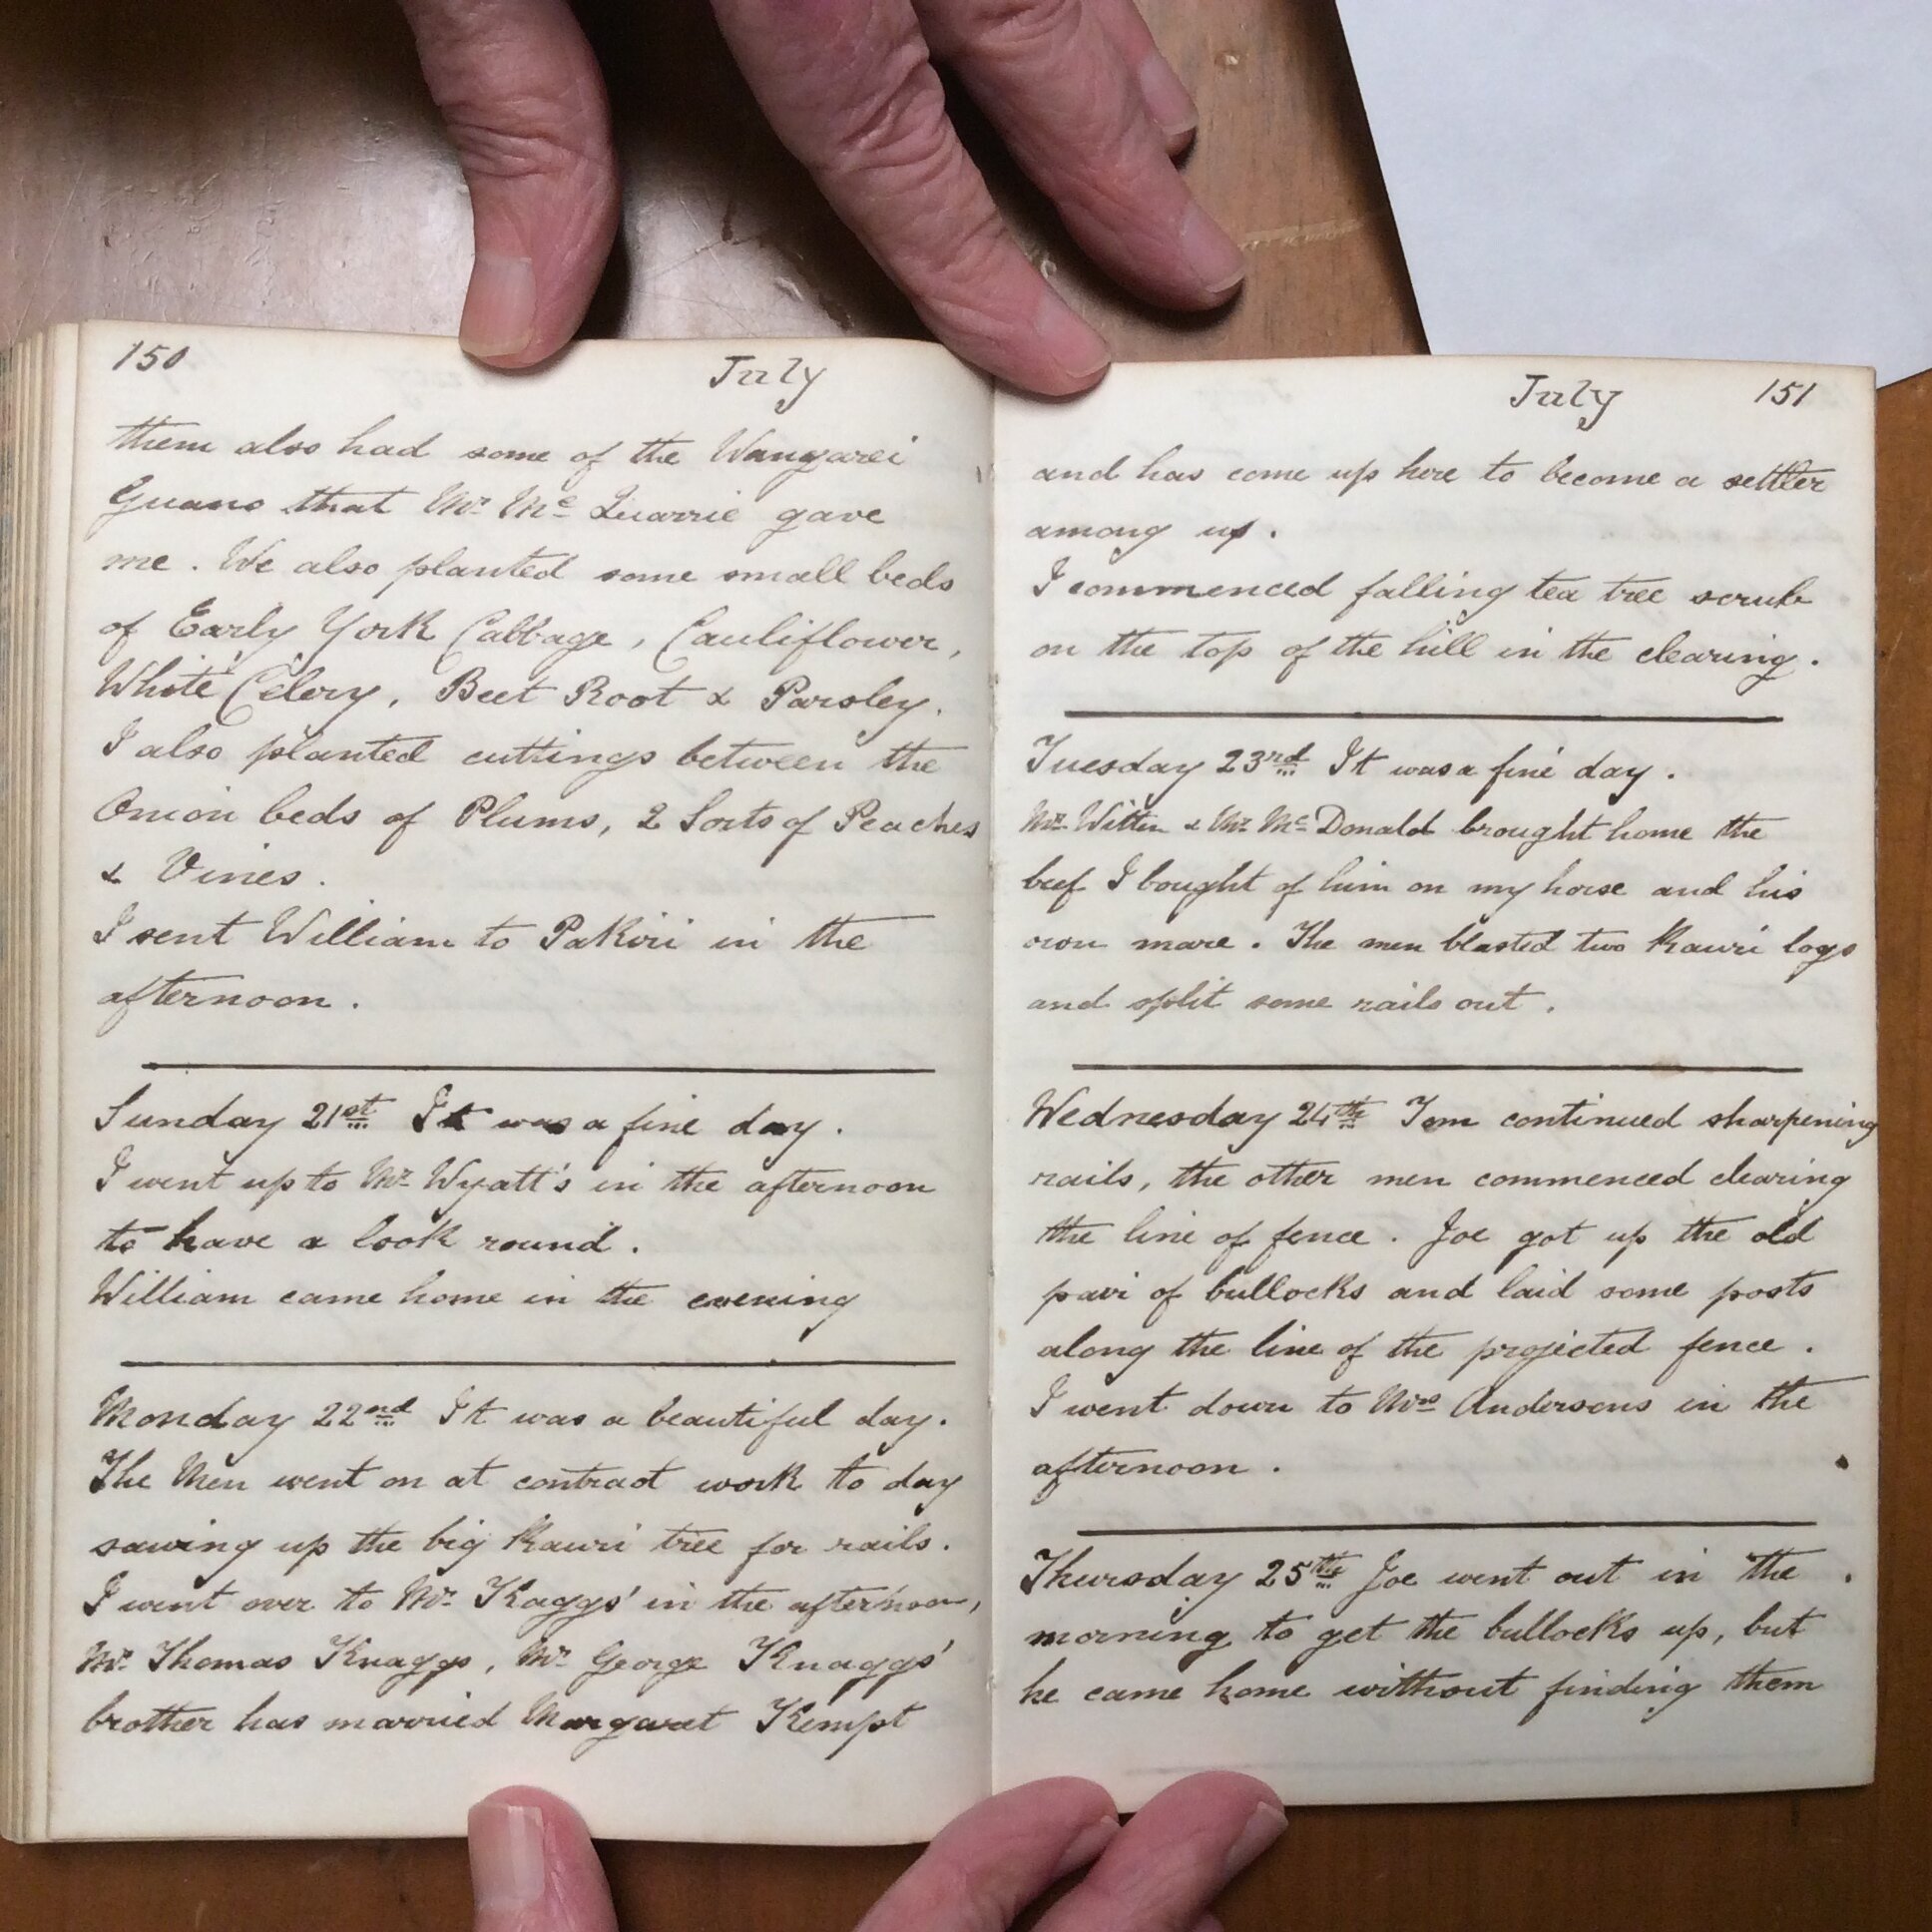 150 July
them also had some of the Wangarei
Guano that Mr. Mc Quarrie gave
me. We also planted some small beds
of Early York Cabbage, Cauliflower,
White Celery, Beet Root & Parsley.
I also planted cuttings between the
Onion beds of Plums, 2 Sorts of Peaches
& Vines.
I sent William to Pakiri in the
afternoon.
Sunday 21st It was a fine day.
I went up to Mr. Wyatt's in the afternoon
to have a look round.
William came home in the evening
Monday 22nd It was a beautiful day.
The Men went on at contract work to day
sawing up the big Kauri tree for rails.
I went over to Mr. Kaggs' in the afternoon,
Mr. Thomas Knaggs, Mr. George Knaggs'
brother has married Margaret Kempt
July 151
and has come up here to become a settler
among us.
I commenced falling tea tree scrub
on the top of the hill in the clearing.
Tuesday 23rd It was a fine day.
Mr. Witten & Mr. McDonald brought home the
beef I bought of him on my horse and his
own mare. The men blasted two Kauri logs
and split some rails out.
Wednesday 24th Tom continued sharpening
rails, the other men commenced clearing
the line of fence. Joe got up the old
pair of bullocks and laid some posts
along the line of the projected fence.
I went down to Mrs Andersons in the
afternoon.
Thursday 25th Joe went out in the
morning to get the bullocks up, but
he came home without finding them